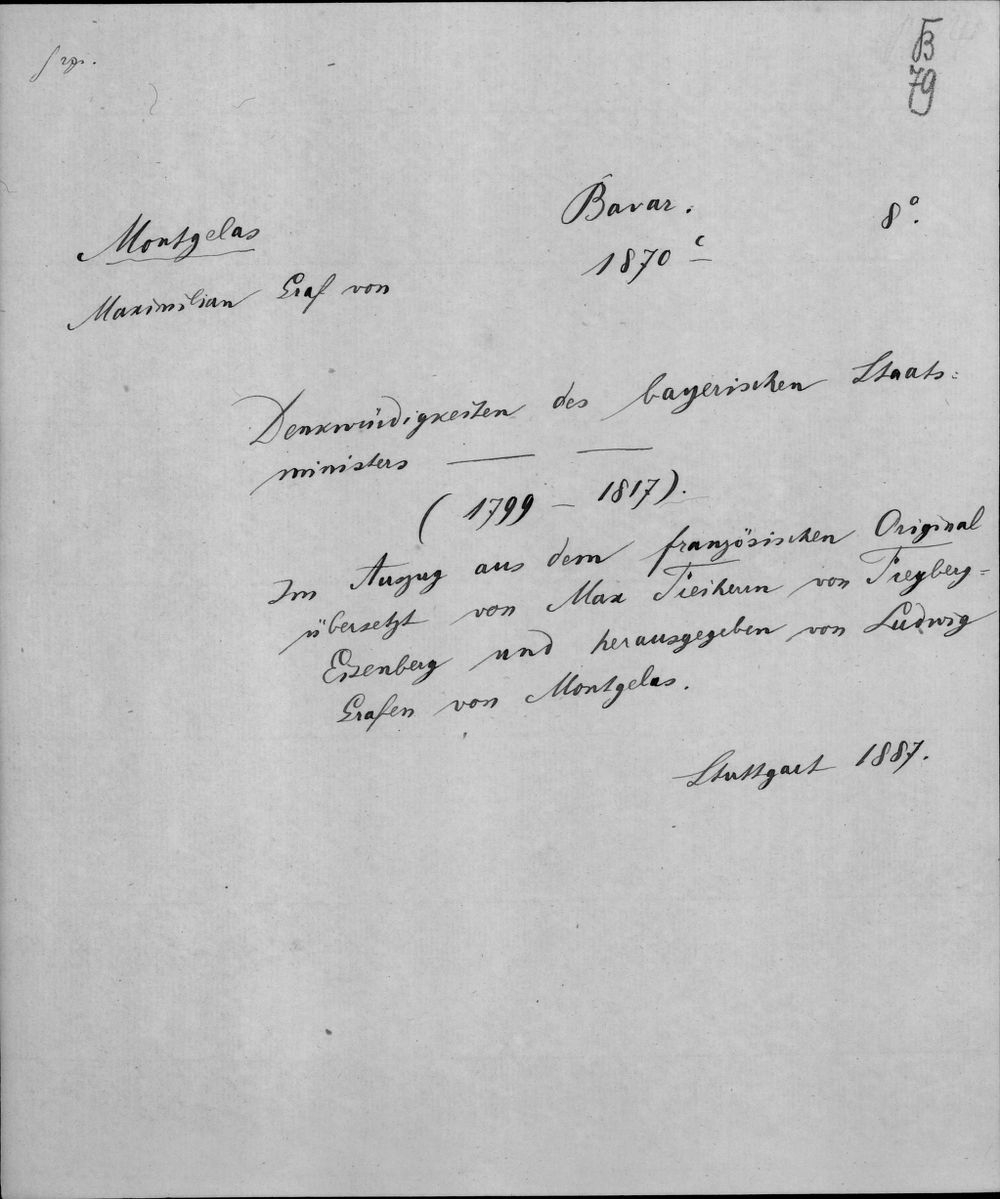 B
79
Bavar. 8°.
Montgelas 1870 c
Maximilian Graf von
Denkwürdigkeiten des bayerischen Staats=
ministers — —
(1799 – 1817).
Im Auszug aus dem französischen Original
übersetzt von Max Freiherrn von Freyberg=
Eisenberg und herausgegeben von Ludwig
Grafen von Montgelas.
Stuttgart 1887.